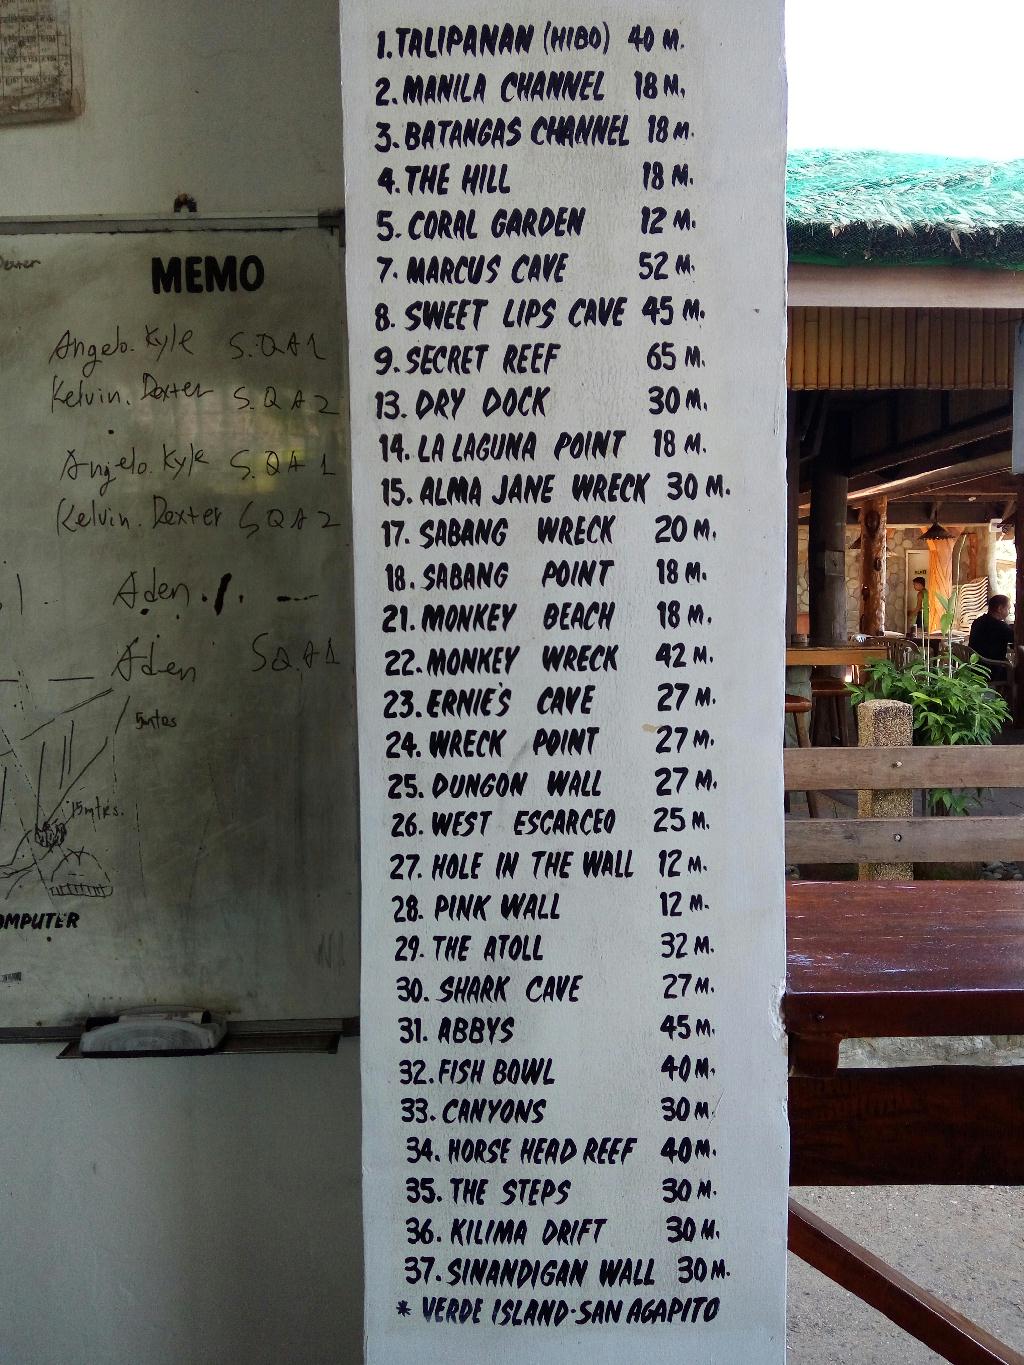 MEMO
Angelo. Kyle S.QA1
Kelvin. Dexter S.QA2
Angelo. Kyle S.QA1
Kelvin. Dexter SQA2
Aden
Aden SQA1
5mtrs
15mtrs.
OMPUTER
1. TALIPANAN (HIBO) 40 M.
2. MANILA CHANNEL 18 M.
3. BATANGAS CHANNEL 18 M.
4. THE HILL 18 M.
5. CORAL GARDEN 12 M.
7. MARCUS CAVE 52 M.
8. SWEET LIPS CAVE 45 M.
9. SECRET REEF 65 M.
13. DRY DOCK 30 M.
14. LA LAGUNA POINT 18 M.
15. ALMA JANE WRECK 30 M.
17. SABANG WRECK 20 M.
18. SABANG POINT 18 M.
21. MONKEY BEACH 18 M.
22. MONKEY WRECK 42 M.
23. ERNIE'S CAVE 27 M.
24. WRECK POINT 27 M.
25. DUNGON WALL 27 M.
26. WEST ESCARCEO 25 M.
27. HOLE IN THE WALL 12 M.
28. PINK WALL 12 M.
29. THE ATOLL 32 M.
30. SHARK CAVE 27 M.
31. ABBYS 45 M.
32. FISH BOWL 40 M.
33. CANYONS 30 M.
34. HORSE HEAD REEF 40 M.
35. THE STEPS 30 M.
36. KILIMA DRIFT 30 M.
37. SINANDIGAN WALL 30 M.
* VERDE ISLAND-SAN AGAPITO